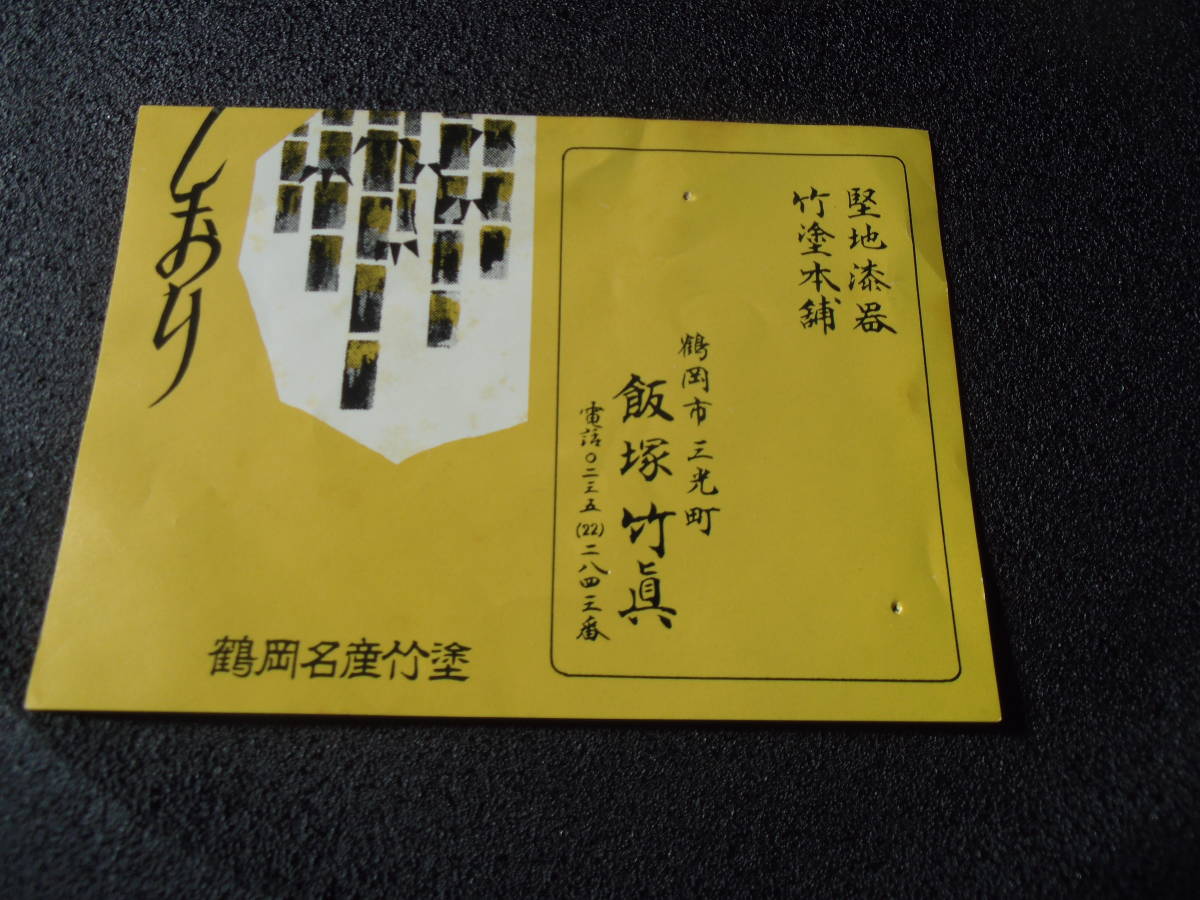 堅地漆器
竹塗本舗
鶴岡市三光町
飯塚竹眞
電話〇二三五(22)二八四三番
しおり
鶴岡名産竹塗